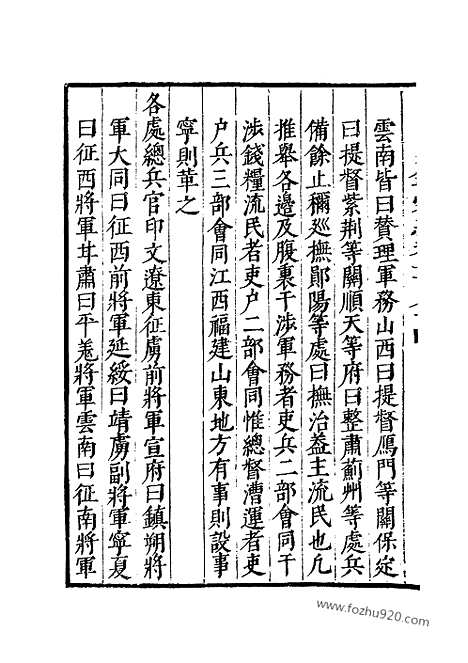 雲南皆曰贊理軍務山西曰提督鴈門等關保定
曰提督紫荆等關順天等府曰整肅薊州等處兵
備餘止稱廵撫鄖陽等處曰撫治葢主流民也凢
推舉各邊及腹裏干渉軍務者吏兵二部會同干
渉錢糧流民者吏户二部會同惟總督漕運者吏
户兵三部會同江西福建山東地方有事則設事
寧則革之
各處總兵官印文遼東征虜前將軍宣府曰鎮朔將
軍大同曰征西前將軍延綏曰靖虜副將軍寧夏
曰征西將軍甘肅曰平羌將軍雲南曰征南將軍
www.fozhu920.com